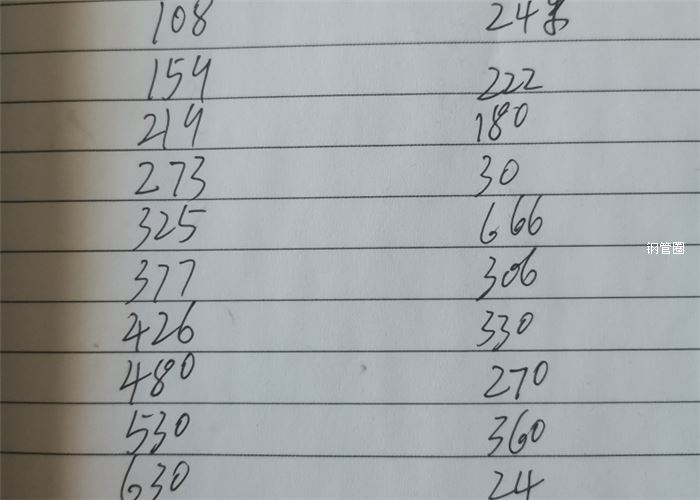 108 24米
159 222
219 180
273 30
325 666
钢管圈
377 306
426 330
480 270
530 360
630 24